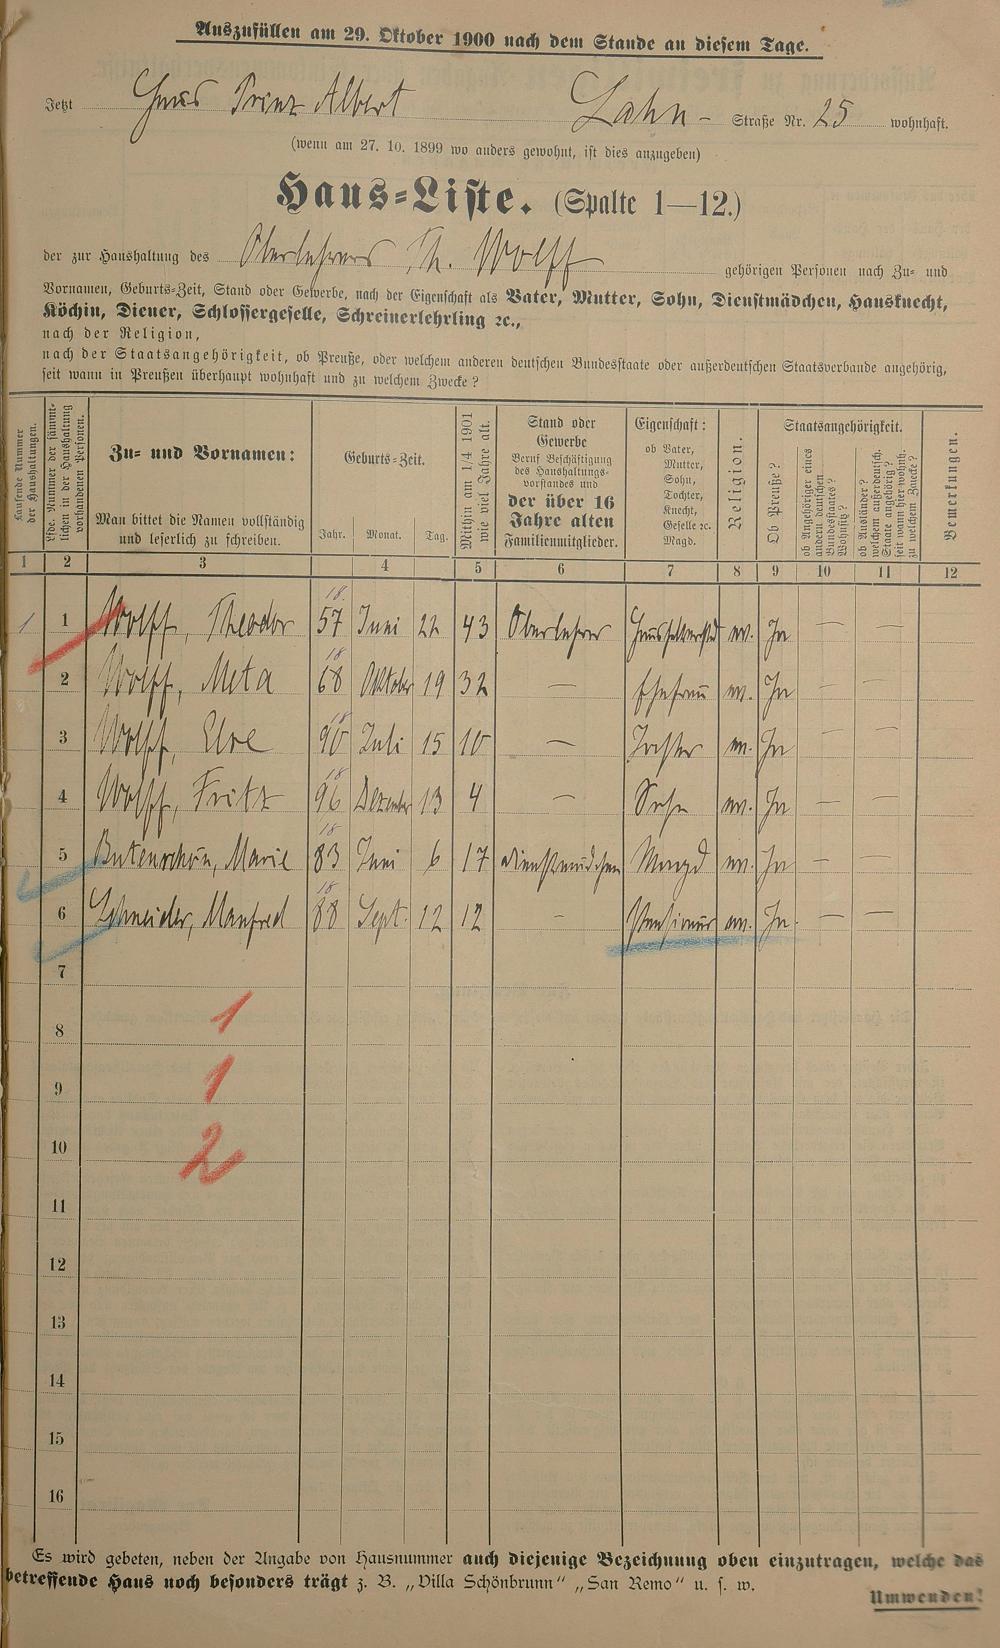 Auszufüllen am 29. Oktober 1900 nach dem Stande an diesem Tage.
Jetzt Haus Prinz Albert Lahn- Straße Nr. 25 wohnhaft.
(wenn am 27. 10. 1899 wo anders gewohnt, ist dies anzugeben)
Haus-Liste. (Spalte 1—12.)
der zur Haushaltung des Oberlehrers Th. Wolff gehörigen Personen nach Zu- und
Vornamen, Geburts-Zeit, Stand oder Gewerbe, nach der Eigenschaft als Vater, Mutter, Sohn, Dienstmädchen, Hausknecht,
Köchin, Diener, Schlossergeselle, Schreinerlehrling ꝛc.,
nach der Religion,
nach der Staatsangehörigkeit, ob Preuße, oder welchem anderen deutschen Bundesstaate oder außerdeutschen Staatsverbande angehörig,
seit wann in Preußen überhaupt wohnhaft und zu welchem Zwecke?
Laufende Nummer
der Haushaltungen.
Lfde. Nummer der sämmt-
lichen in der Haushaltung
vorhandenen Personen.
Zu- und Vornamen:
Man bittet die Namen vollständig
und leserlich zu schreiben.
Geburts-Zeit.
Jahr. Monat. Tag.
Mithin am 1/4 1901
wie viel Jahre alt.
Stand oder
Gewerbe
Beruf Beschäftigung
des Haushaltungs-
vorstandes und
der über 16
Jahre alten
Familienmitglieder.
Eigenschaft:
ob Vater,
Mutter,
Sohn,
Tochter,
Knecht,
Geselle ꝛc.
Magd.
Religion.
Staatsangehörigkeit.
Ob Preuße?
ob Angehöriger eines
andern deutschen
Bundesstaates?
Wohnsitz?
ob Ausländer?
welchem außerdeutsch.
Staate angehörig?
seit wann hier wohnh.
zu welchem Zwecke?
Bemerkungen.
1 2 3 4 5 6 7 8 9 10 11 12
1 1 Wolff, Theodor 18 57 Juni 22 43 Oberlehrer Haushaltvorstd ev. Ja — —
2 Wolff, Meta 18 68 Oktober 19 32 — Ehefrau ev. Ja — —
3 Wolff, Else 18 90 Juli 15 10 — Tochter ev. Ja — —
4 Wolff, Fritz 18 96 Dezember 13 4 — Sohn ev. Ja — —
5 Butenschön, Marie 18 83 Juni 6 17 Dienstmädchen Magd ev. Ja — —
6 Schneider, Manfred 18 88 Sept. 12 12 - Pensionär ev. Ja — —
7
8 1
9 1
10 2
11
12
13
14
15
16
Es wird gebeten, neben der Angabe von Hausnummer auch diejenige Bezeichnung oben einzutragen, welche das
betreffende Haus noch besonders trägt z. B. „Villa Schönbrunn“ „San Remo“ u. s. w.
Umwenden!